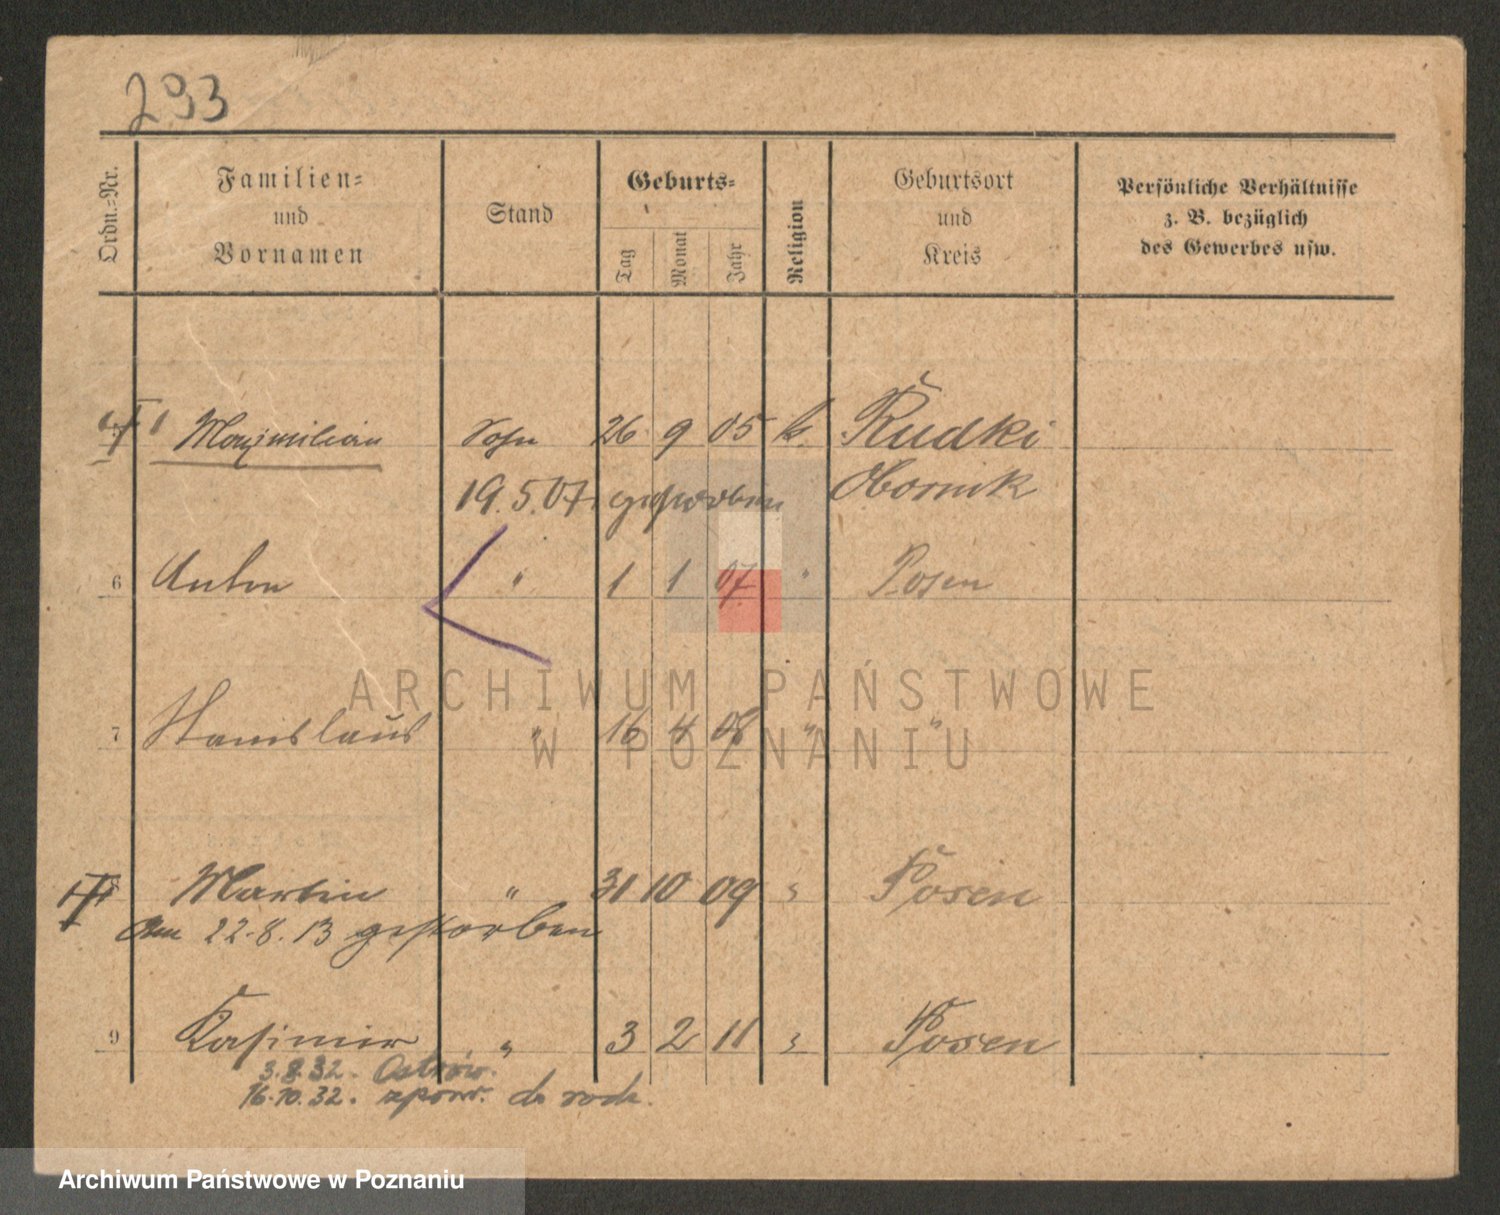 293
Ordn.-Nr.
Familien-
und
Vornamen
Stand
Geburts-
Tag
Monat
Jahr
Religion
Geburtsort
und
Kreis
Persönliche Verhältnisse
z. B. bezüglich
des Gewerbes usw.
Maximilian Sohn 26 9 05 k. Rudki
19.5.07. gestorben Obornik
6 Anton " 1 1 07 " Posen
ARCHIWUM PAŃSTWOWE
7 Stanislaus " 16 4 08 " "
W POZNANIU
Martin " 31 10 09 " Posen
Am 22.8.13 gestorben
9 Kasimir " 3 2 11 " Posen
3.8.32. Ostrów.
16.10.32. zpow. do rodz.
Archiwum Państwowe w Poznaniu